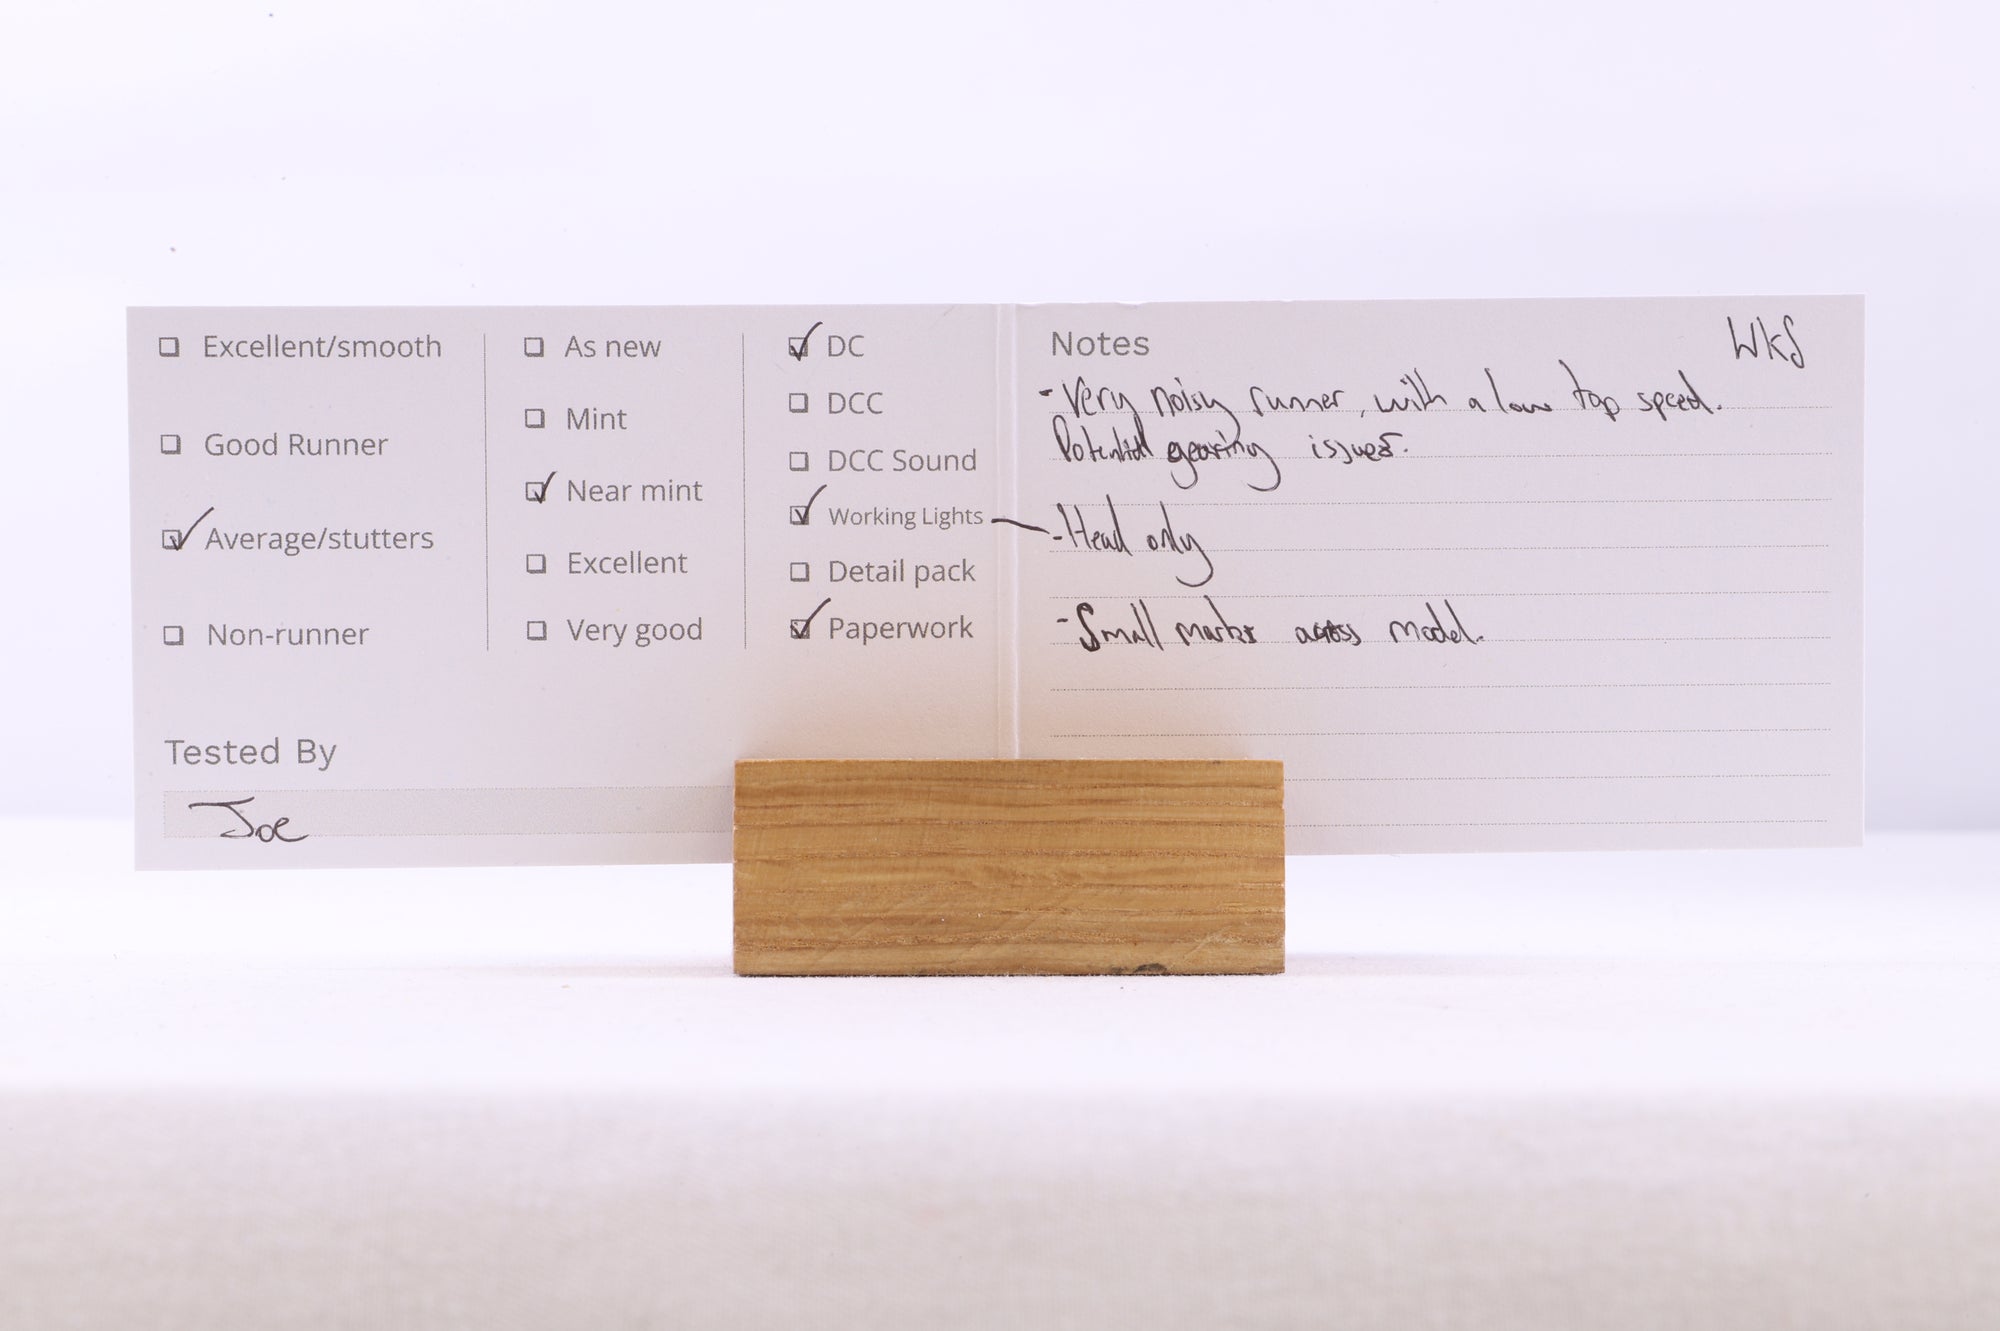 Excellent/smooth
Good Runner
Average/stutters
Non-runner
As new
Mint
Near mint
Excellent
Very good
DC
DCC
DCC Sound
Working Lights
Detail pack
Paperwork
Tested By
Joe
Notes
WKS
-Very noisy runner, with a low top speed.
Potential gearing issues.
-Head only
-Small marks across model.